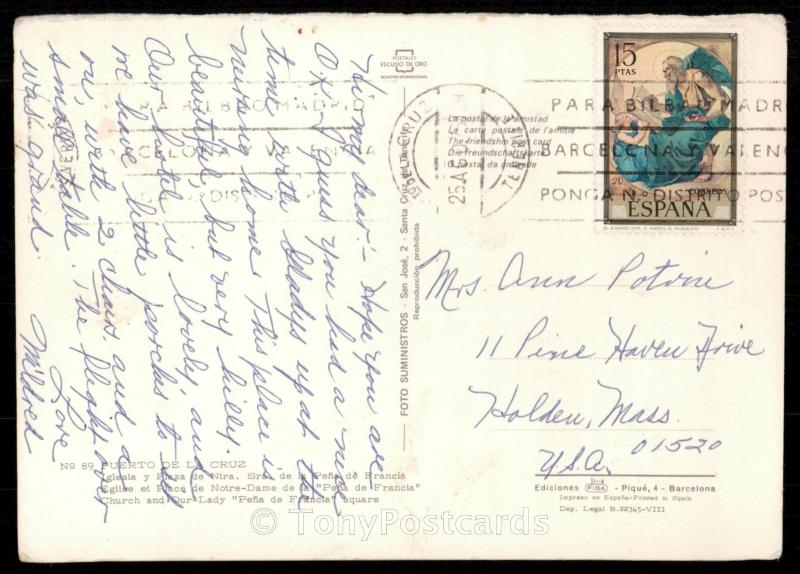 Hi my dear! - Hope you are
O.K. I guess you had a nice
time with Gladys up at the
nursing home. This place is
beautiful but very hilly.
Our hotel is lovely, and
we have little porches to sit
on, with 2 chairs. and a
small table. The flight over
was grand.
Love
Mildred
POSTALES
ESCUDO DE ORO
REGISTRO INTERNACIONAL
La postal de la amistad
La carte postale de l'amitié
The friendship post card
Die freundschaftskarte
FOTO SUMINISTROS - San José, 2 - Santa Cruz de Tenerife
Reproducción prohibida
CRUZ
25
TENERIFE
PARA BILBAO MADRID
BARCELONA Y VALENCIA
PONGA Nº DISTRITO POSTAL
15
PTAS
CORREOS
ESPAÑA
Mrs. Ann Potvin
11 Pine Haven Drive
Holden, Mass.
01520
U.S.A.
Nº 89 PUERTO DE LA CRUZ
Iglesia y Plaza de Ntra. Sra. de la Peña de Francia
Eglise et Place de Notre-Dame de la "Peña de Francia"
Church and Our Lady "Peña de Francia" square
Ediciones FISA - Piqué, 4 - Barcelona
Impreso en España-Printed in Spain
Dep. Legal B. 22345-VIII
© TonyPostcards